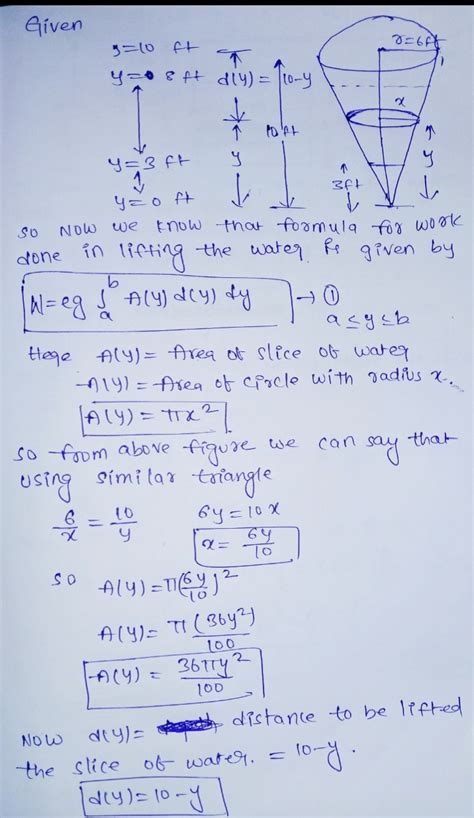 Given
y=10 ft
r=6ft
y=8 ft d(y)= 10-y
10 ft
x
y=3 ft y
3ft y
y=0 ft
so Now we know that formula for work
done in lifting the water is given by
W=eg ∫ₐᵇ A(y) d(y) dy → ①
a≤y≤b
Here A(y)= Area of slice of water
A(y)= Area of circle with radius x.
A(y)= πx²
so from above figure we can say that
using similar triangle
6/x = 10/y 6y=10x
x= 6y/10
so A(y)=π(6y/10)²
A(y)= π(36y²)/100
A(y) = 36πy²/100
Now d(y)= distance to be lifted
the slice of water. = 10-y.
d(y)=10-y